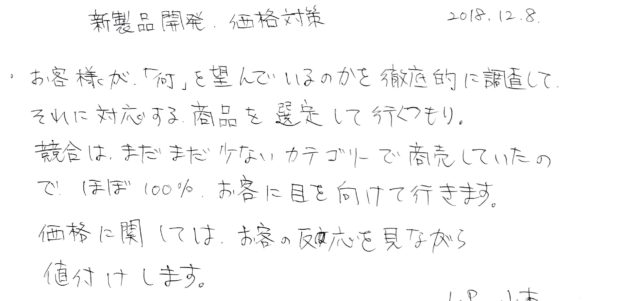 新製品開発、価格対策 2018.12.8.
・お客様が、「何」を望んでいるのかを徹底的に調査して、
それに対応する商品を選定して行くつもり。
競合は、まだまだ少ないカテゴリーで商売していたの
で、ほぼ100%、お客に目を向けて行きます。
価格に関しては、お客の反応を見ながら
値付けします。